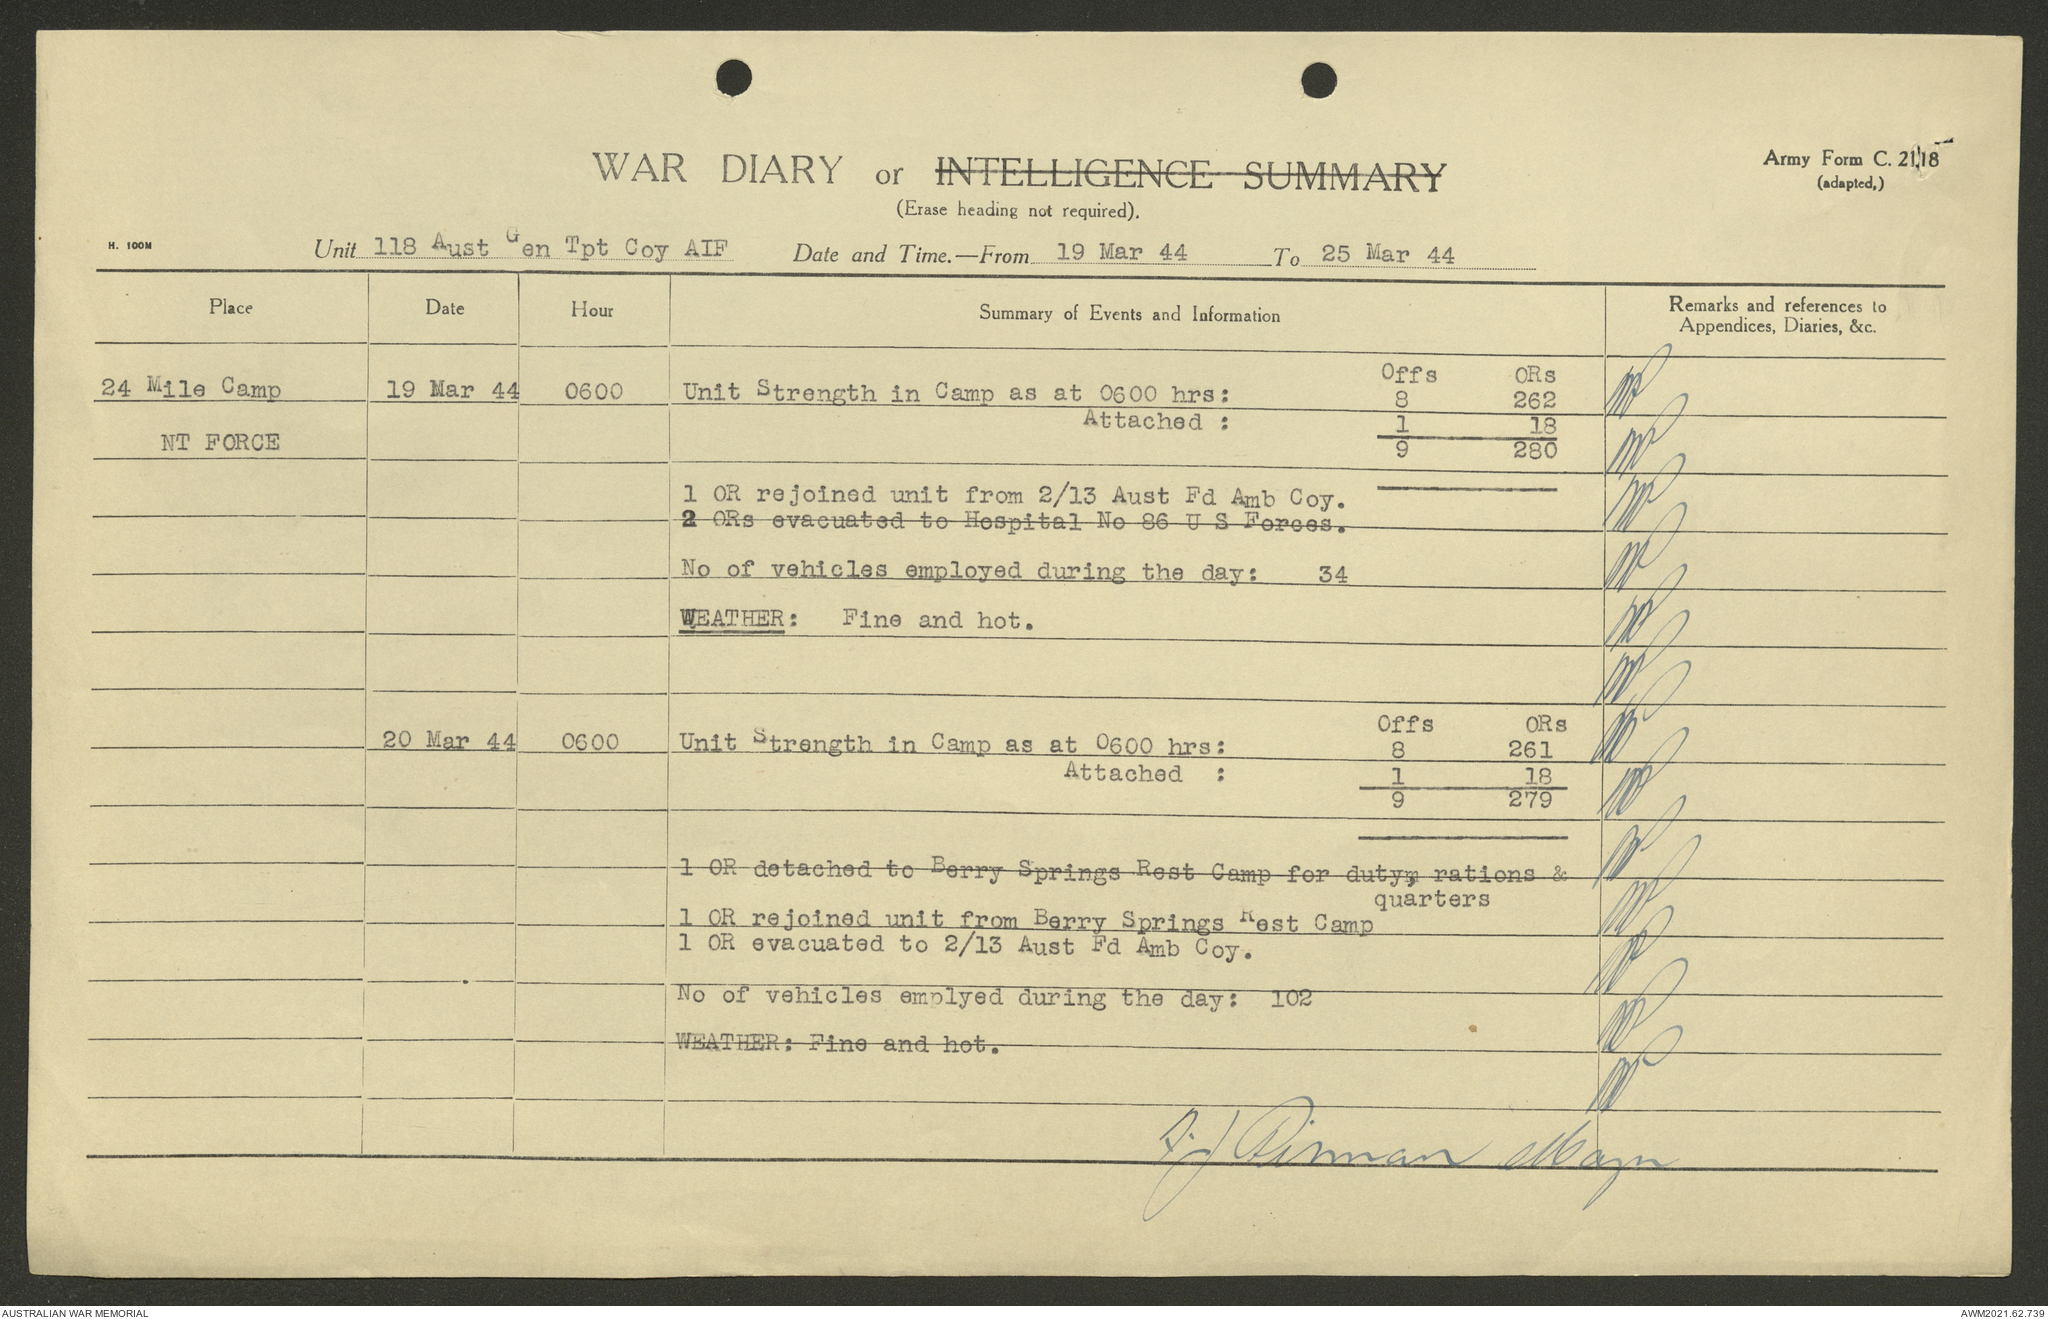 WAR DIARY or INTELLIGENCE SUMMARY
Army Form C. 2118
(adapted,)
(Erase heading not required).
H. 100M
Unit 118 Aust Gen Tpt Coy AIF Date and Time.—From 19 Mar 44 To 25 Mar 44
Place Date Hour Summary of Events and Information Remarks and references to
Appendices, Diaries, &c.
Offs ORs
24 Mile Camp 19 Mar 44 0600 Unit Strength in Camp as at 0600 hrs: 8 262
Attached : 1 18
NT FORCE 9 280
1 OR rejoined unit from 2/13 Aust Fd Amb Coy.
2 ORs evacuated to Hospital No 86 U S Forces.
No of vehicles employed during the day: 34
WEATHER: Fine and hot.
Offs ORs
20 Mar 44 0600 Unit Strength in Camp as at 0600 hrs: 8 261
Attached : 1 18
9 279
1 OR detached to Berry Springs Rest Camp for duty, rations &
quarters
1 OR rejoined unit from Berry Springs Rest Camp
1 OR evacuated to 2/13 Aust Fd Amb Coy.
No of vehicles emplyed during the day: 102
WEATHER: Fine and hot.
AUSTRALIAN WAR MEMORIAL
AWM2021.62.739